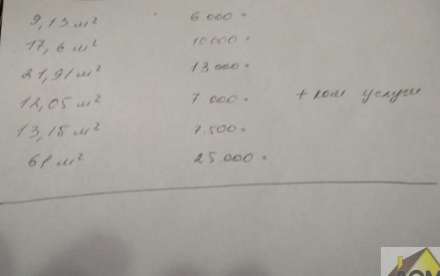 9,13 м² 6 000=
17,6 м² 10 000=
21,91 м² 13 000=
12,05 м² 7 000= + ком услуги
13,18 м² 7.500=
61 м² 25 000=
ДОМ